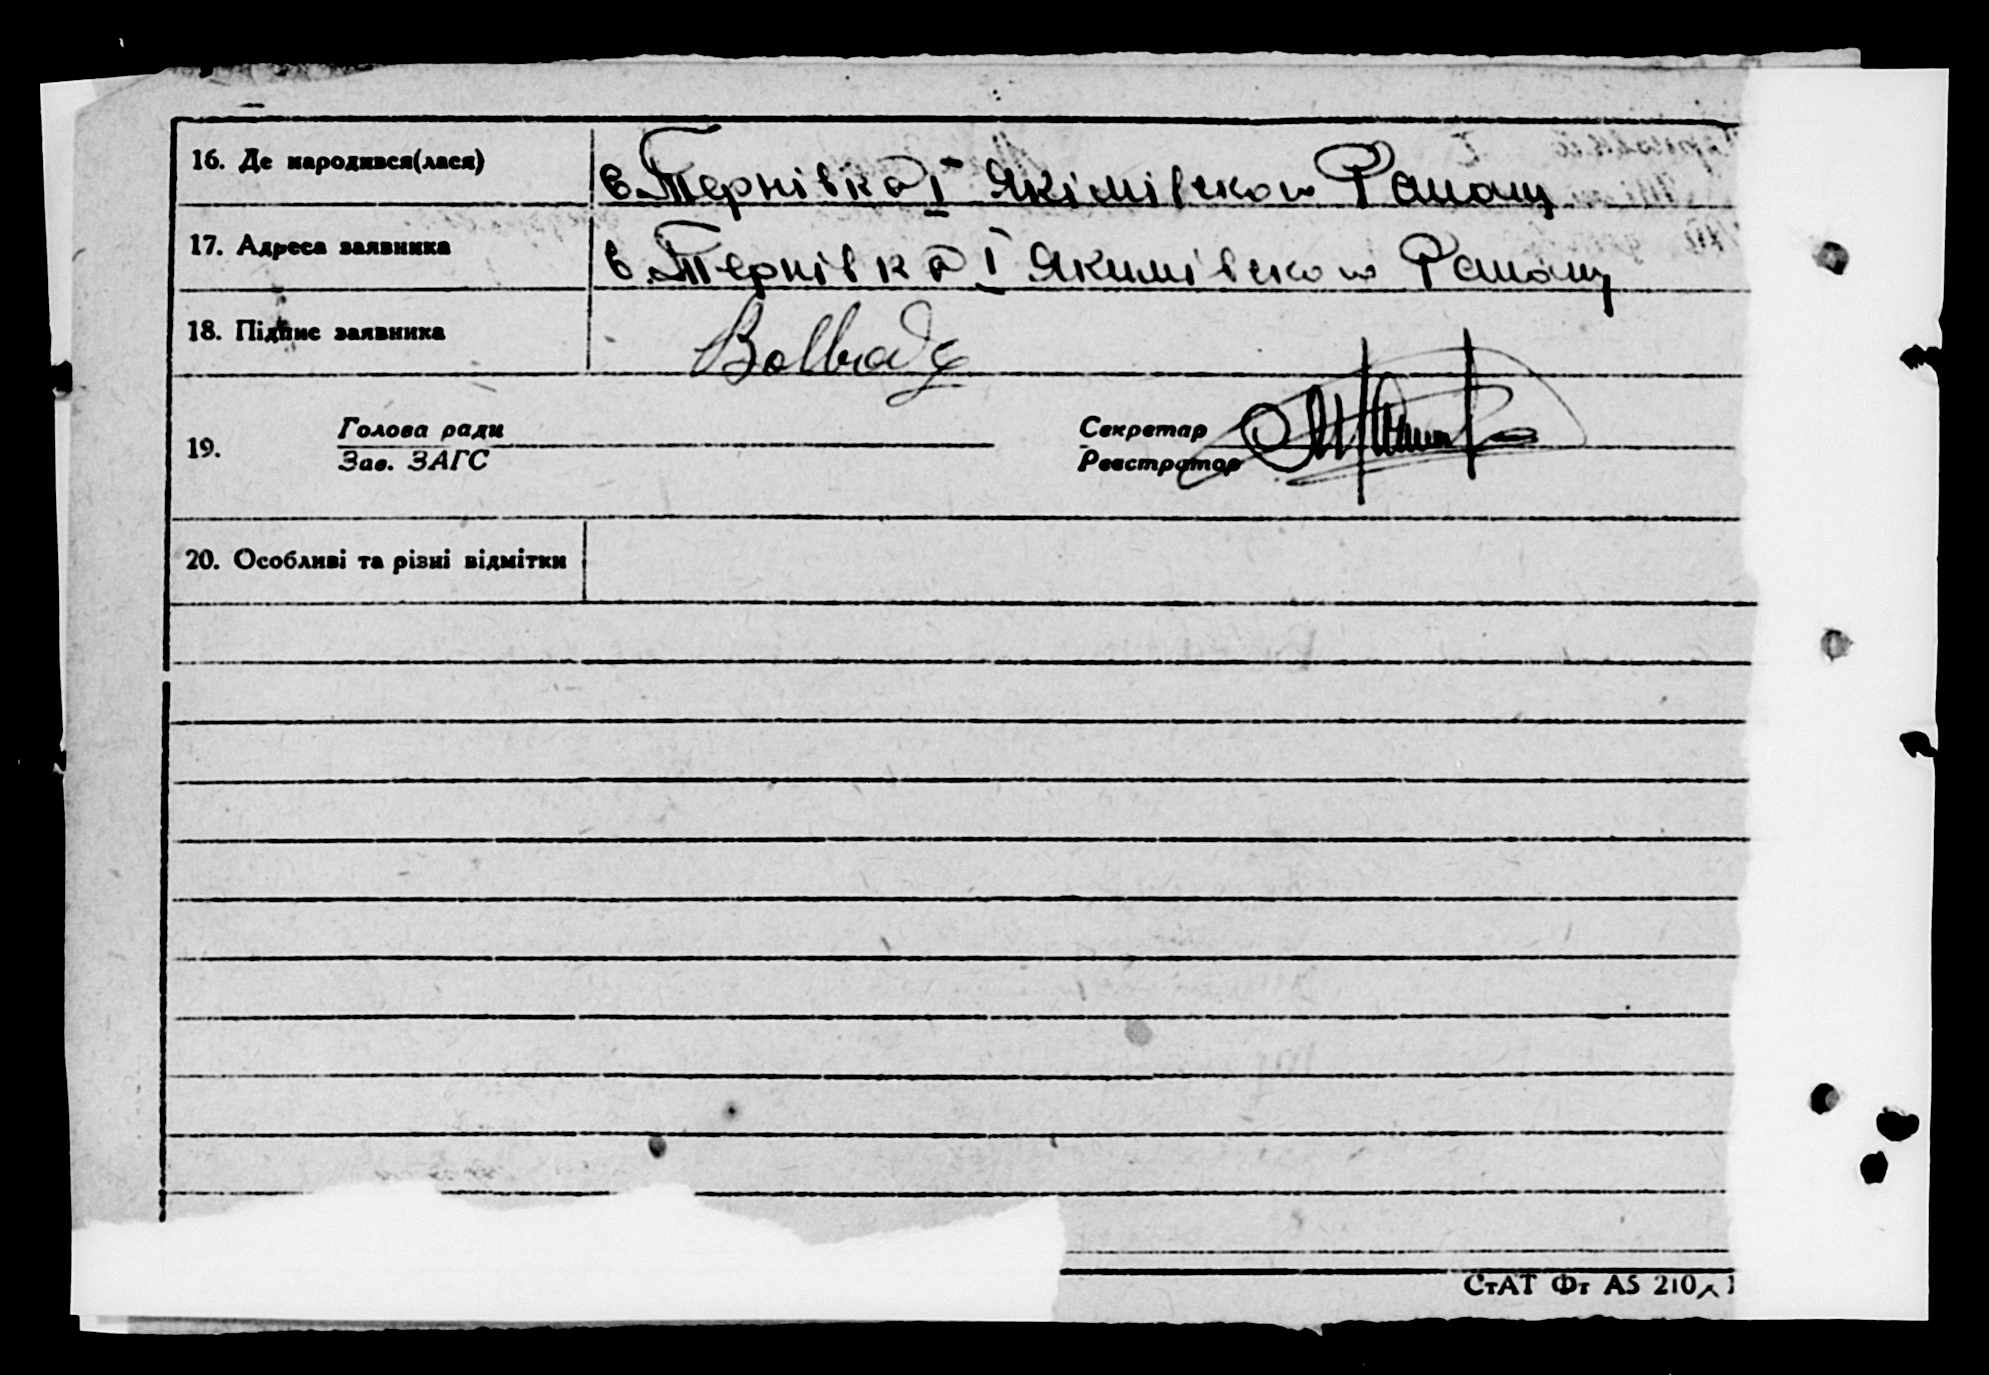 16. Де народився(лася) с. Тернівка І Якімівского Району
17. Адреса заявника с. Тернівка І Якимівского Району
18. Підпис заявника
19. Голова ради Секретар
Зав. ЗАГС Реєстратор
20. Особливі та різні відмітки
СтАТ Фт А5 210